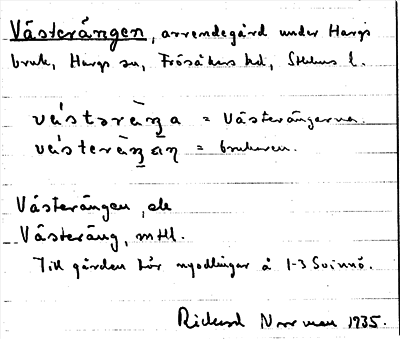 Västerängen, arrendegård under Hargs
bruk, Hargs sn, Frösåkers hd, Sthlms l.
västərä̀ŋa = Västerängarna.
västerä̀ŋän = brukaren.
Västerängen, ele
Västeräng, mtl.
Till gården hör nyodlingar å 1-3 Svinnö.
Rickard Norrman 1935.